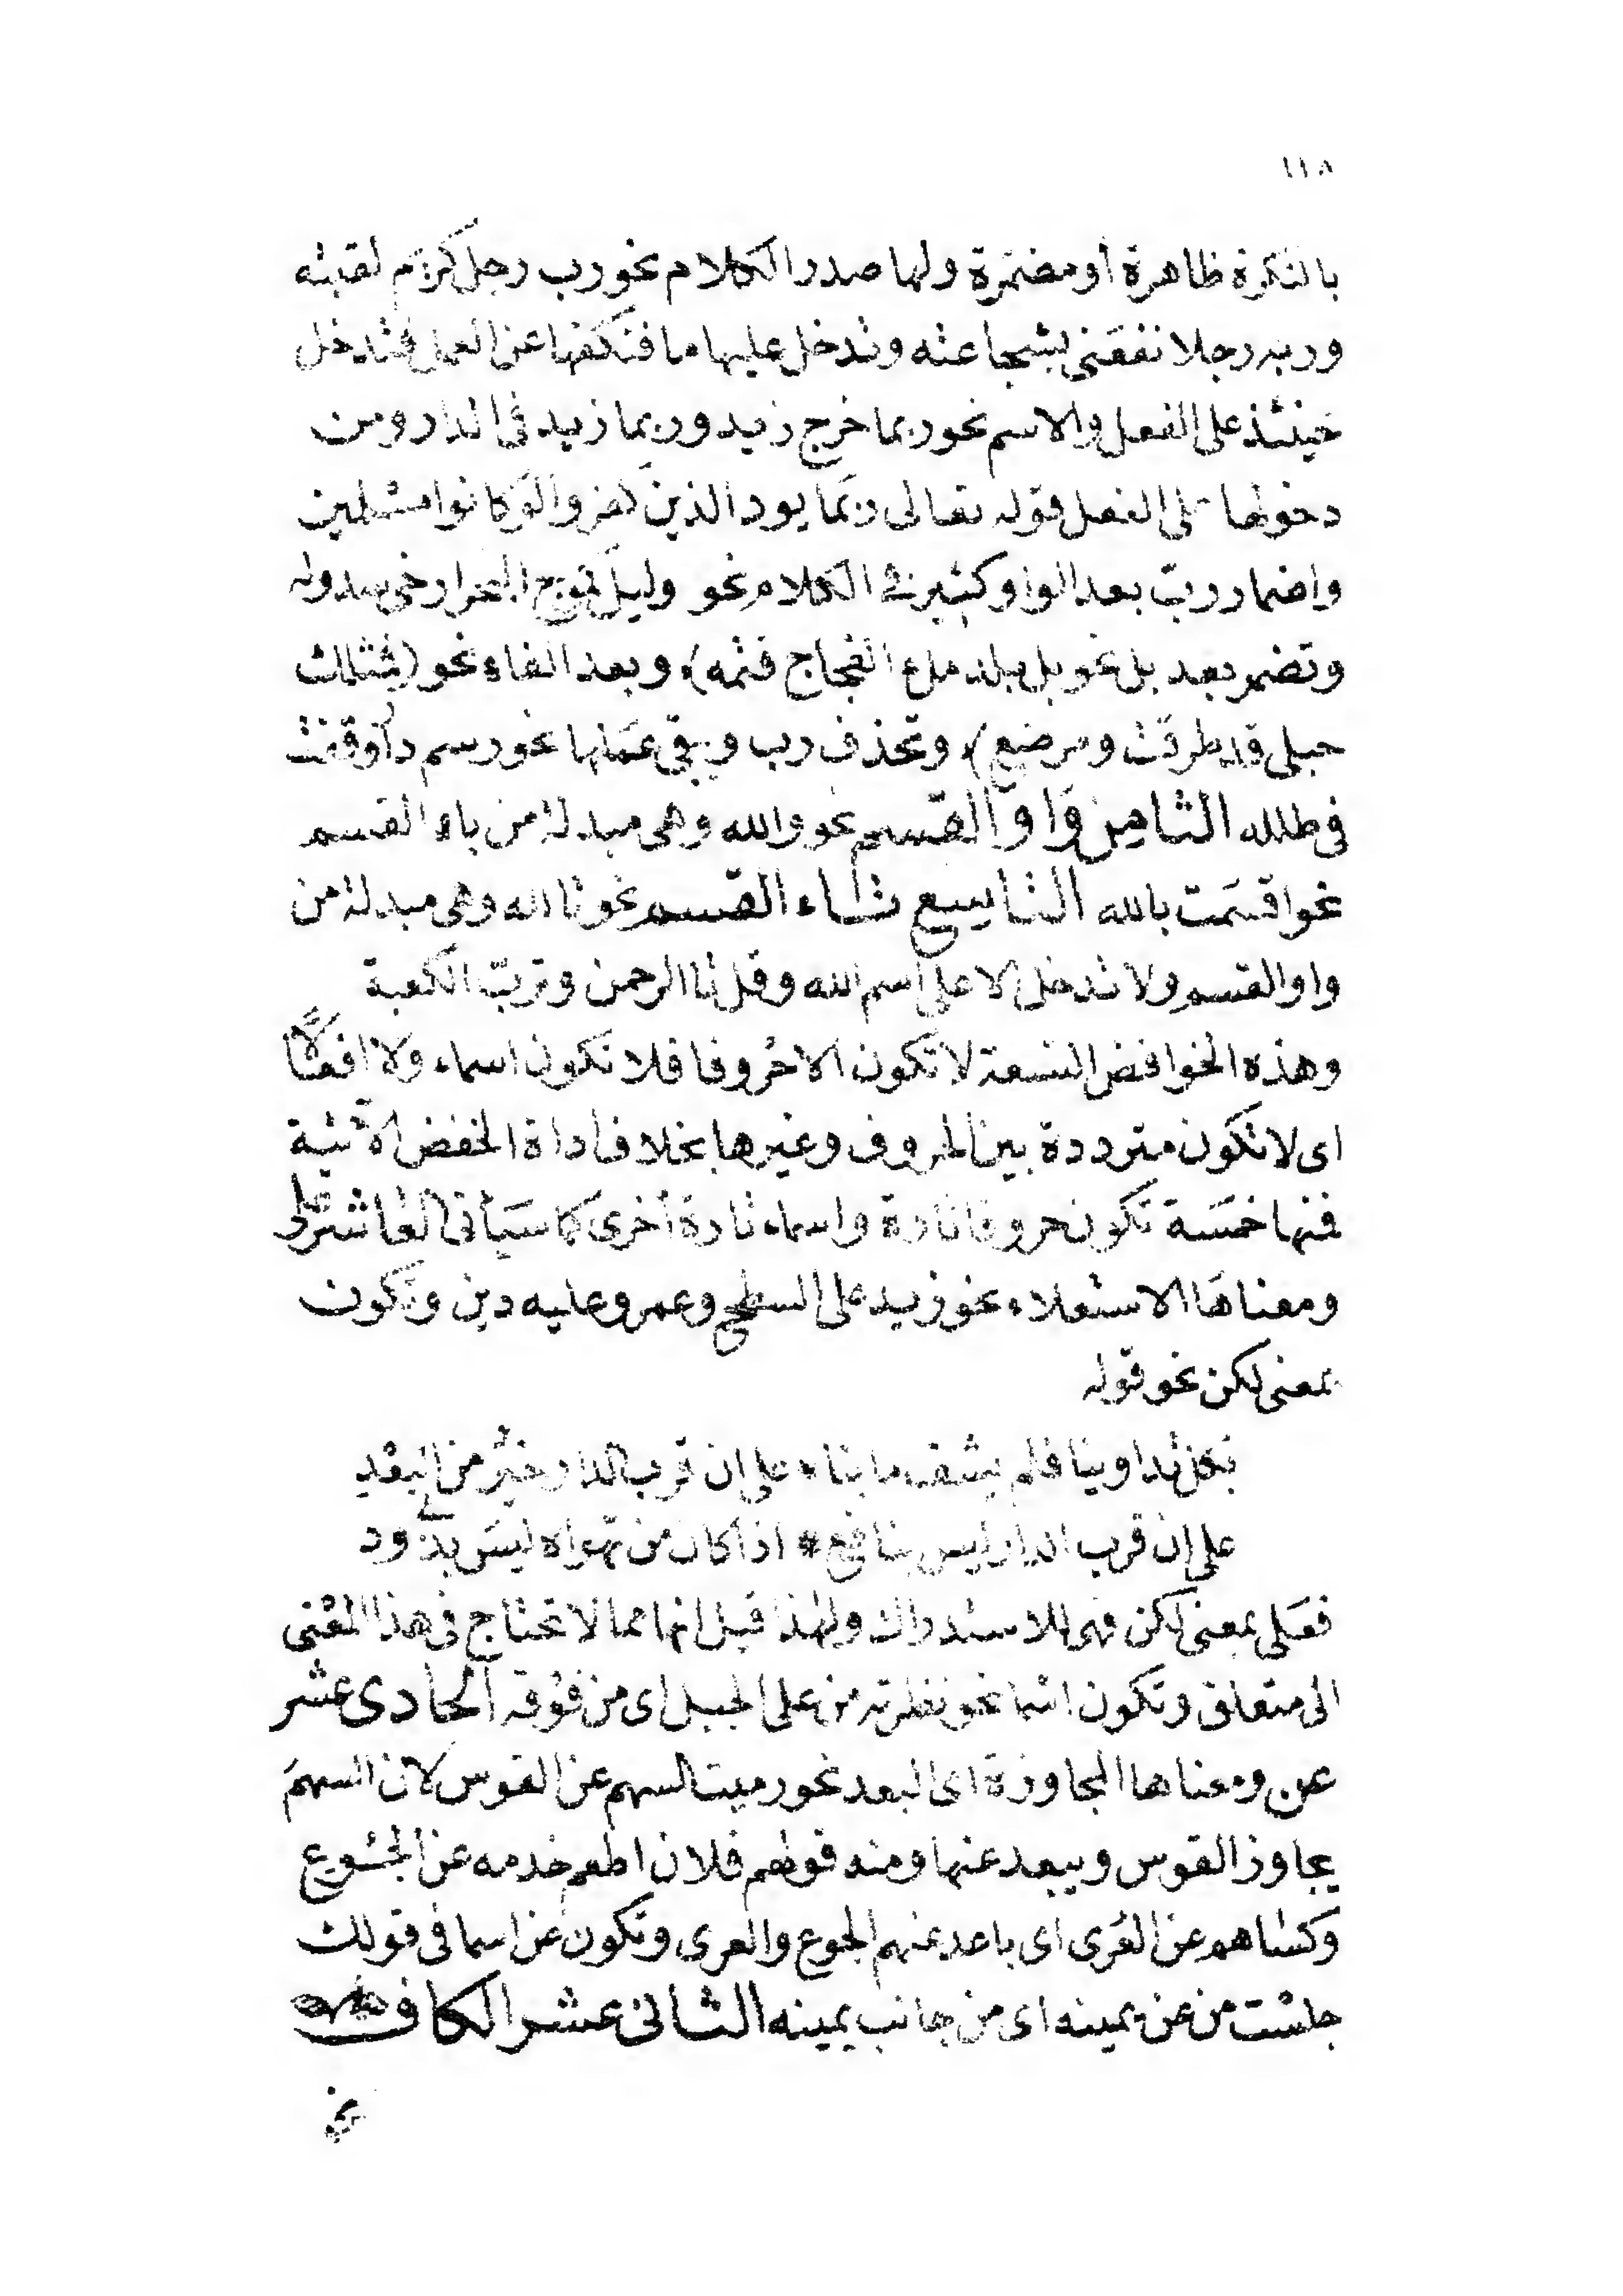 ١١٨
بالنكرة ظاهرة أو مضمرة ولها صدر الكلام نحو رب رجل كريم لقيته
وربه رجلا نفعنى بشجاعته وتدخل عليها ما فتكفها عن العمل فتدخل
حينئذ على الفعل والاسم نحو ربما خرج زيد وربما زيد فى الدار ومن
دخولها على الفعل قوله تعالى ربما يود الذين كفروا لو كانوا مسلمين
واضمار رب بعد الواو كثير فى الكلام نحو وليل كموج البحر ارخى سدوله
وتضمر بعد بل نحو بل بلد ملء الفجاج قتمه) وبعد الفاء نحو (فمثلك
حبلى قد طرقت ومرضع) وتحذف رب ويبقى عملها نحو رسم دار وقفت
فى طلله الثامن واو القسم نحو والله وهى مبدلة من باء القسم
نحو اقسمت بالله التاسع تاء القسم نحو تالله وهى مبدلة من
واو القسم ولا تدخل الا على اسم الله وقل تا الرحمن وترب الكعبة
وهذه الخوافض التسعة لا تكون الا حروفا فلا تكون اسماء ولا افعالا
اى لا تكون مترددة بين الحروف وغيرها بخلاف اداة الخفض الآتية
فنها خمسة تكون حروفا تارة واسماء تارة أخرى كما سيأتى العاشر على
ومعناها الاستعلاء نحو زيد على السطح وعمرو عليه دين وتكون
بمعنى لكن نحو قوله
بكل تداوينا فلم يشف ما بنا * على ان قرب الدار خير من البعد
على ان قرب الدار ليس بنافع * اذا كان من تهواه ليس بذى ود
فعلى بمعنى لكن فهى للاستدراك ولهذا قيل انها مما لا تحتاج فى هذا المعنى
الى متعلق وتكون اسما نحو نظرته من على الجبل اى من فوقه الحادى عشر
عن ومعناها المجاوزة اى البعد نحو رميت السهم عن القوس لان السهم
يجاوز القوس ويبعد عنها ومنه قولهم فلان اطعم خدمه عن الجوع
وكساهم عن العرى اى باعد عنهم الجوع والعرى وتكون عن اسما فى قولك
جلست من عن يمينه اى من جانب يمينه الثانى عشر الكاف
نحو